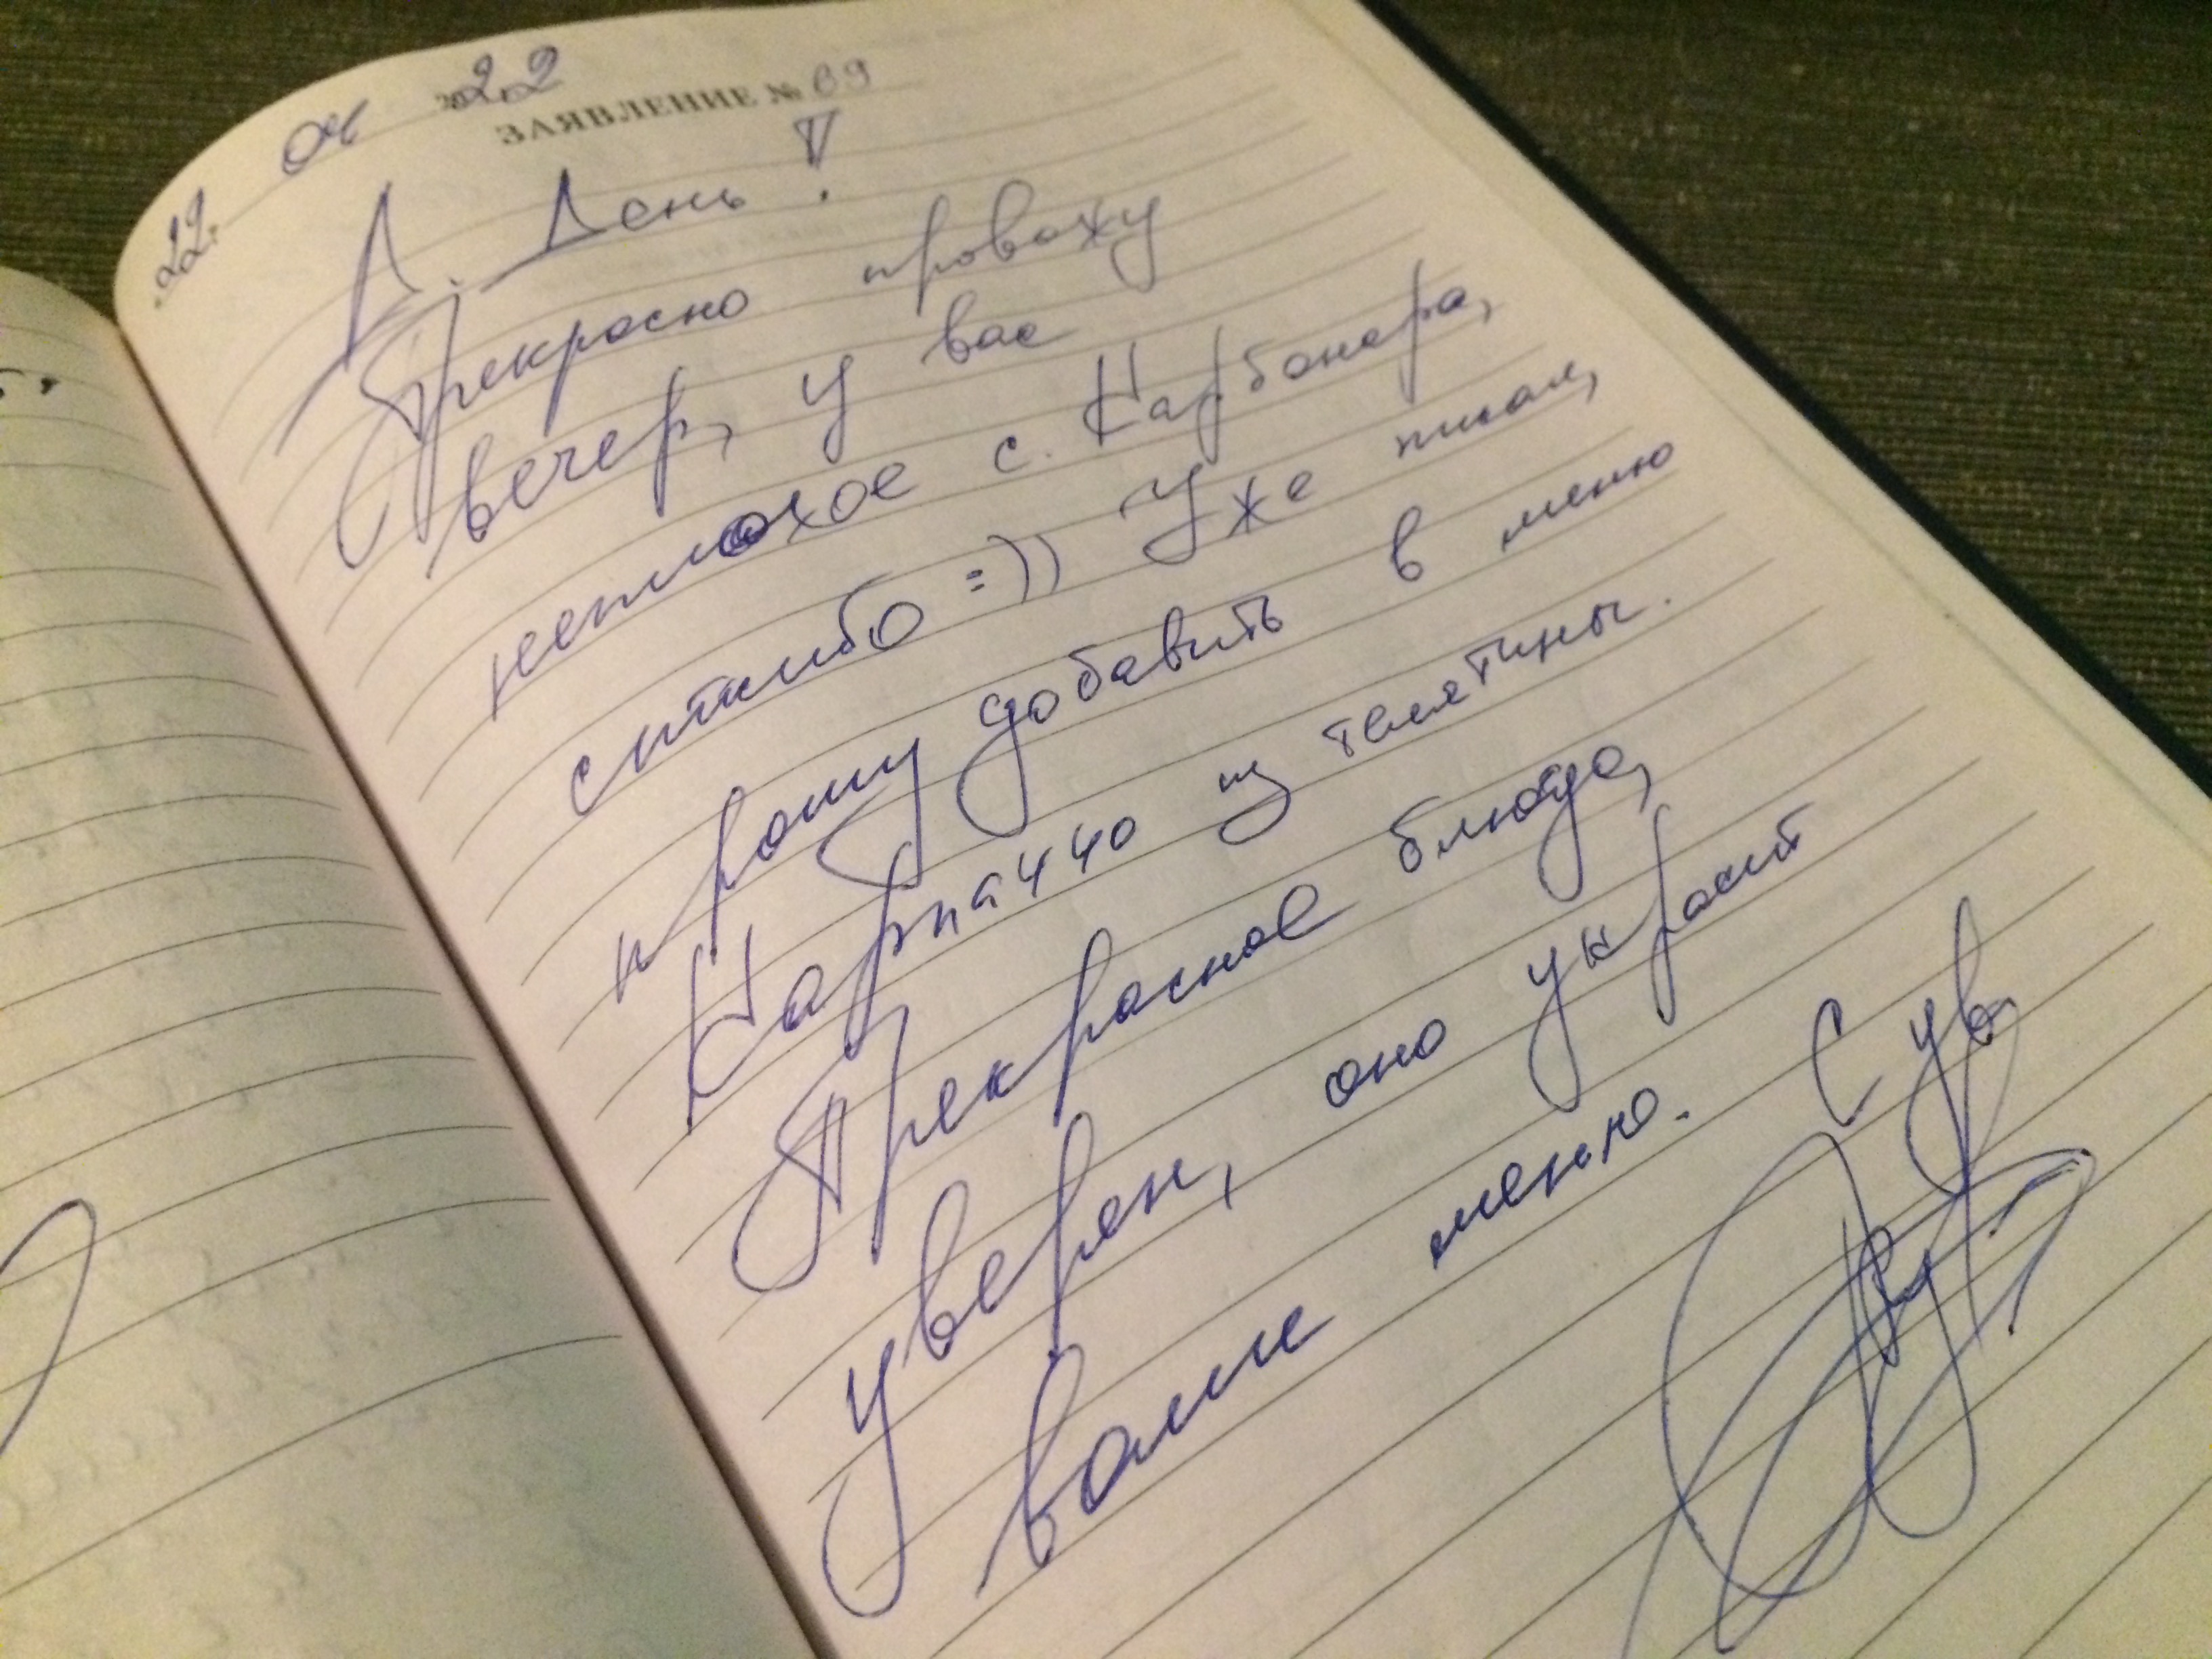 22. 04 2022
ЗАЯВЛЕНИЕ № 69
Д. День!
Прекрасно провожу
вечер, у вас
неплохое с. Карбонара,
спасибо =)) Уже писал,
прошу добавить в меню
Карпаччо из телятины.
Прекрасное блюдо,
уверен, оно украсит
ваше меню. С ув